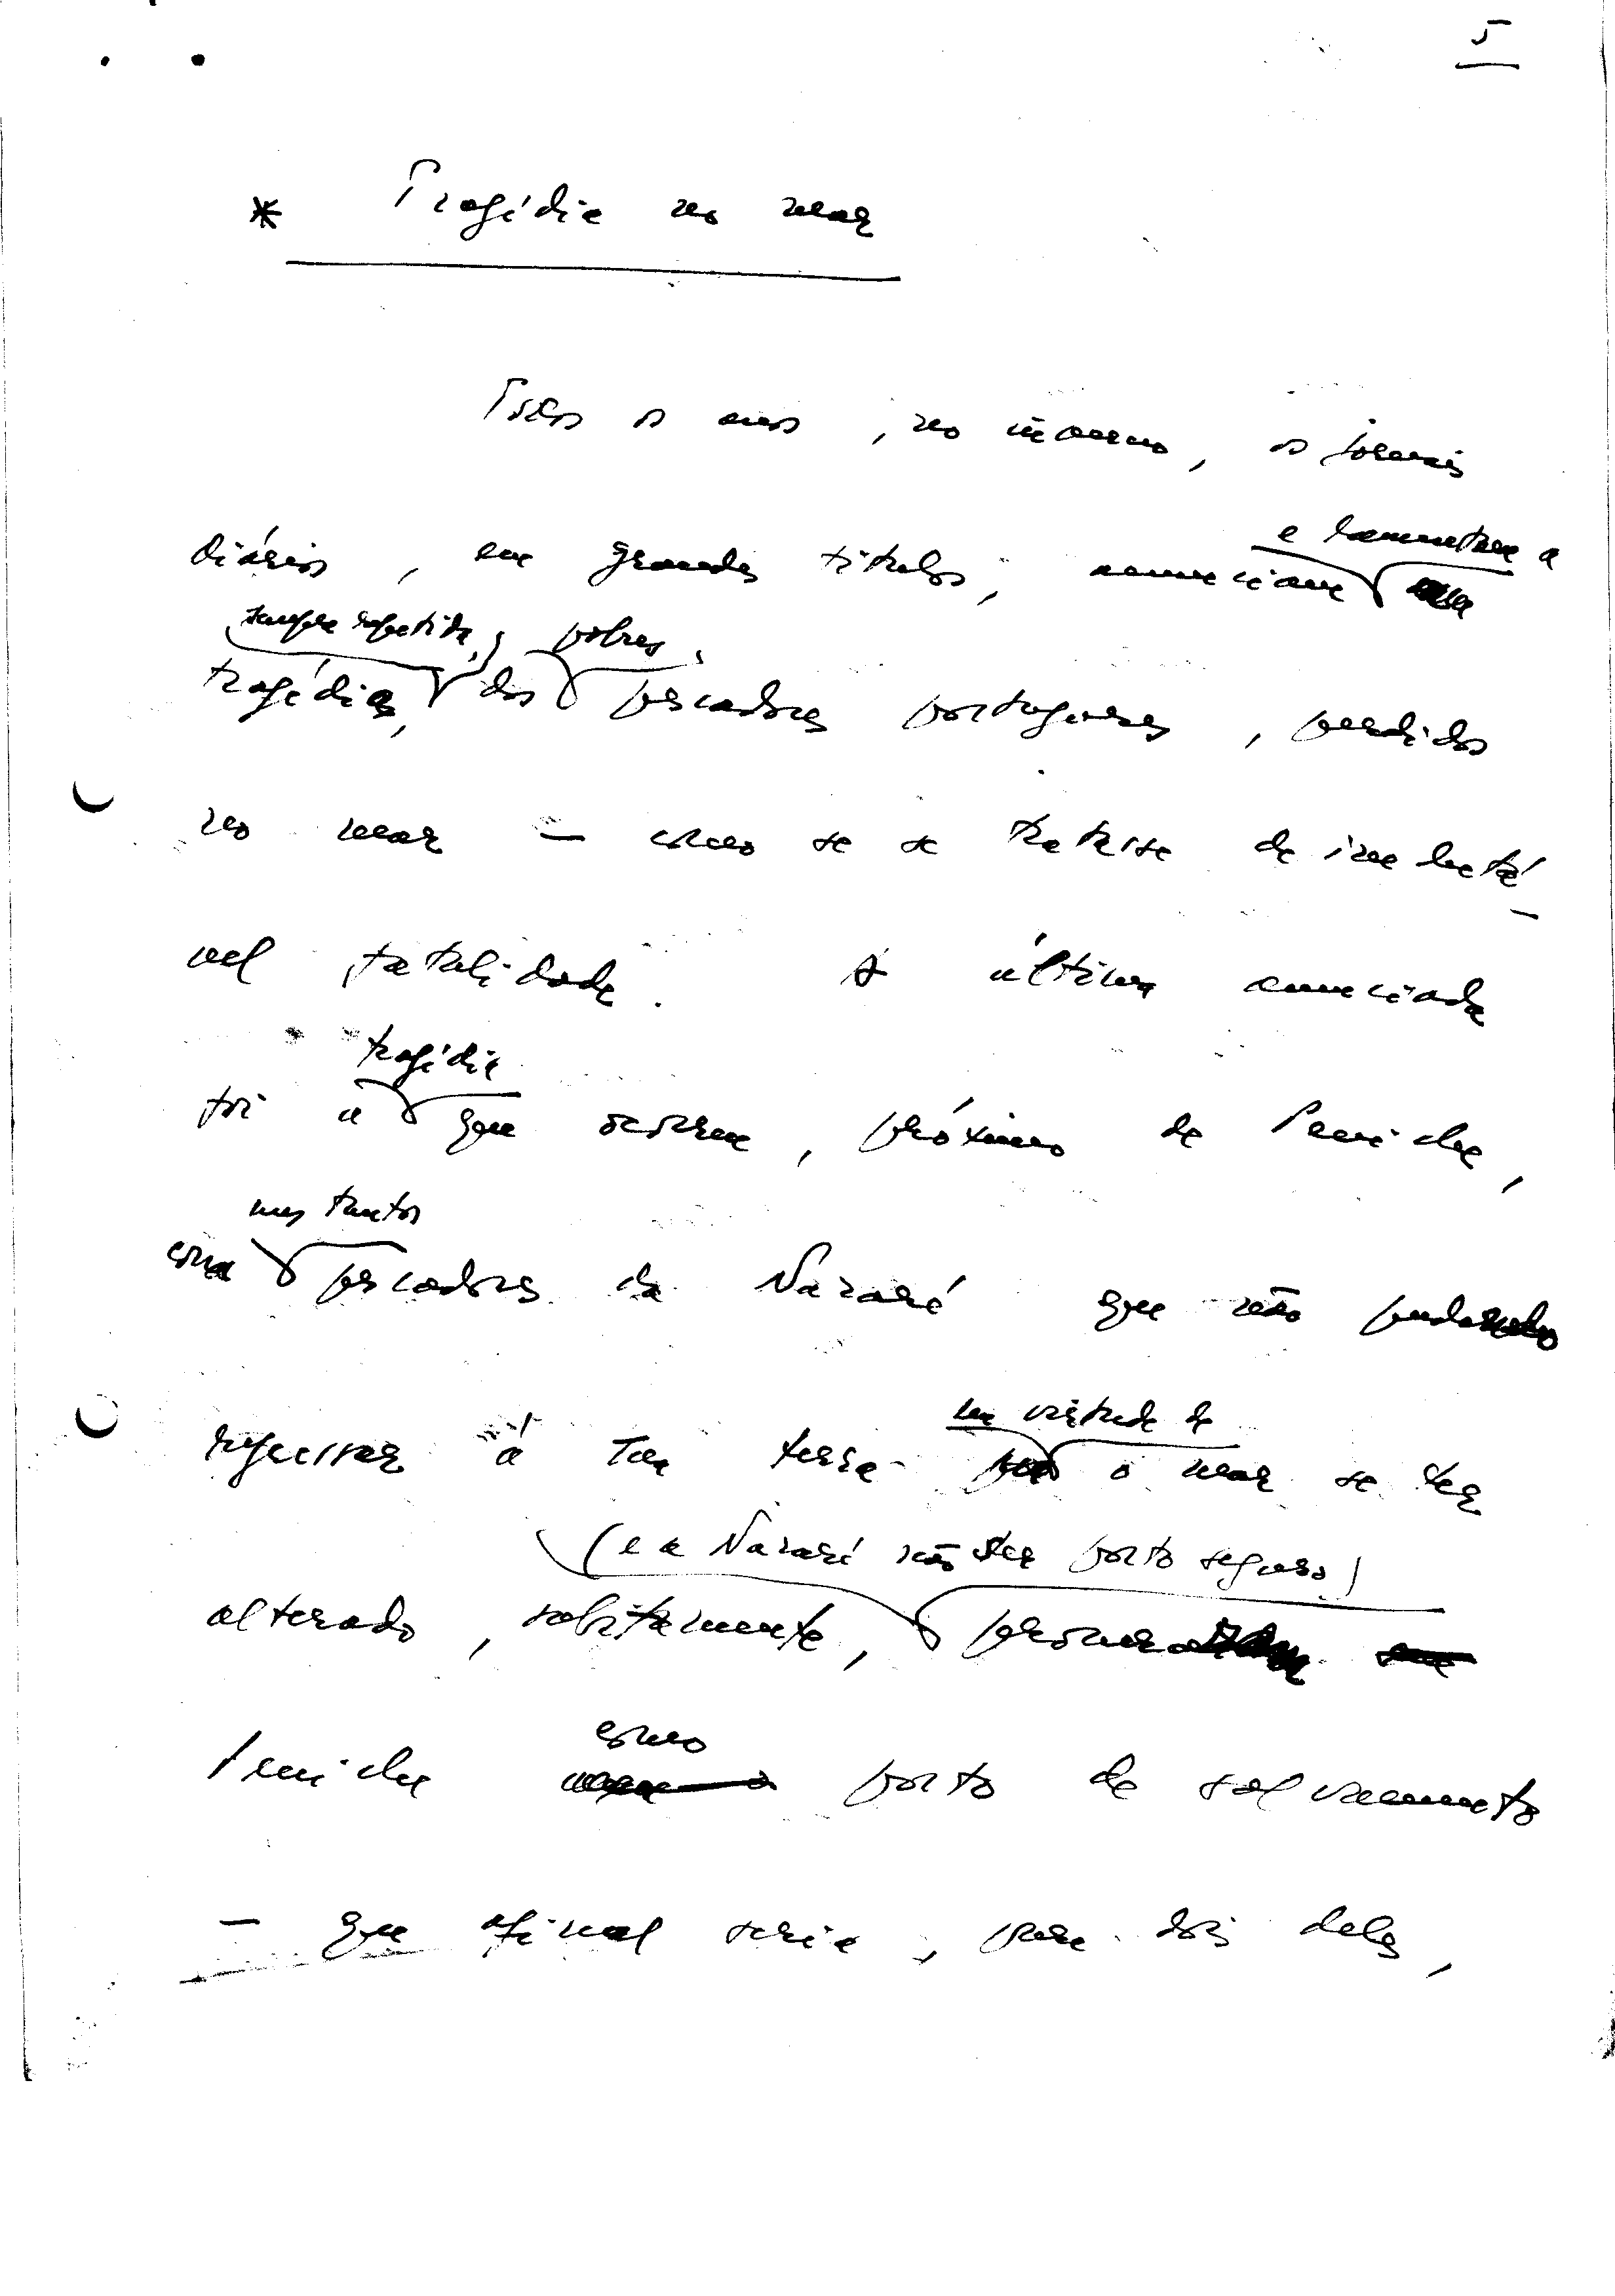 5
* Tragédia no mar
Todos os anos, no inverno, os jornais
e lamentam a
diários, em grandes títulos, anunciam
sempre repetida, pobres,
tragédia, dos pescadores portugueses, perdidos
no mar — como se se tratasse de inelutá-
vel fatalidade. A última anunciada
tragédia
foi a que ocorreu, próximo de Peniche,
uns tantos
com pescadores da Nazaré que não podendo
em virtude de
regressar à sua terra o mar se ter
(e a Nazaré não ter porto seguro)
alterado, subitamente,
como
Peniche porto de salvamento
— que afinal seria, para dois deles,